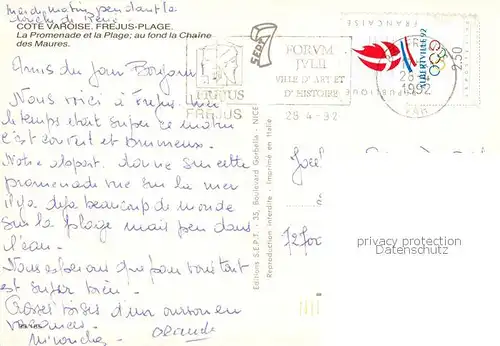 Mardi matin pendant la
COTE VAROISE. FREJUS-PLAGE.
La Promenade et la Plage; au fond la Chaîne
des Maures.
Amis du jour Bonjour!
Nous voici à Fréjus. Hier
le temps était super ce matin
c'est couvert et brumeux.
Notre appart. donne sur cette
promenade vue sur la mer
il y a déjà beaucoup de monde
sur la plage mais peu dans
l'eau.
Nous espérons que pour vous tout
est super bien.
Grosses bises d'un ourson en
vacances.
SEPT
FREJUS
FREJUS
FORVM
JVLII
VILLE D'ART ET
D'HISTOIRE
28-4-92
Editions S.E.P.T. - 35, Boulevard Gorbella - NICE
Reproduction interdite - Imprimé en Italie
FRANCAISE
ALBERTVILLE 92
2,50
REPUBLIQUE
FR
28-
1992
VAR
privacy protection
Datenschutz